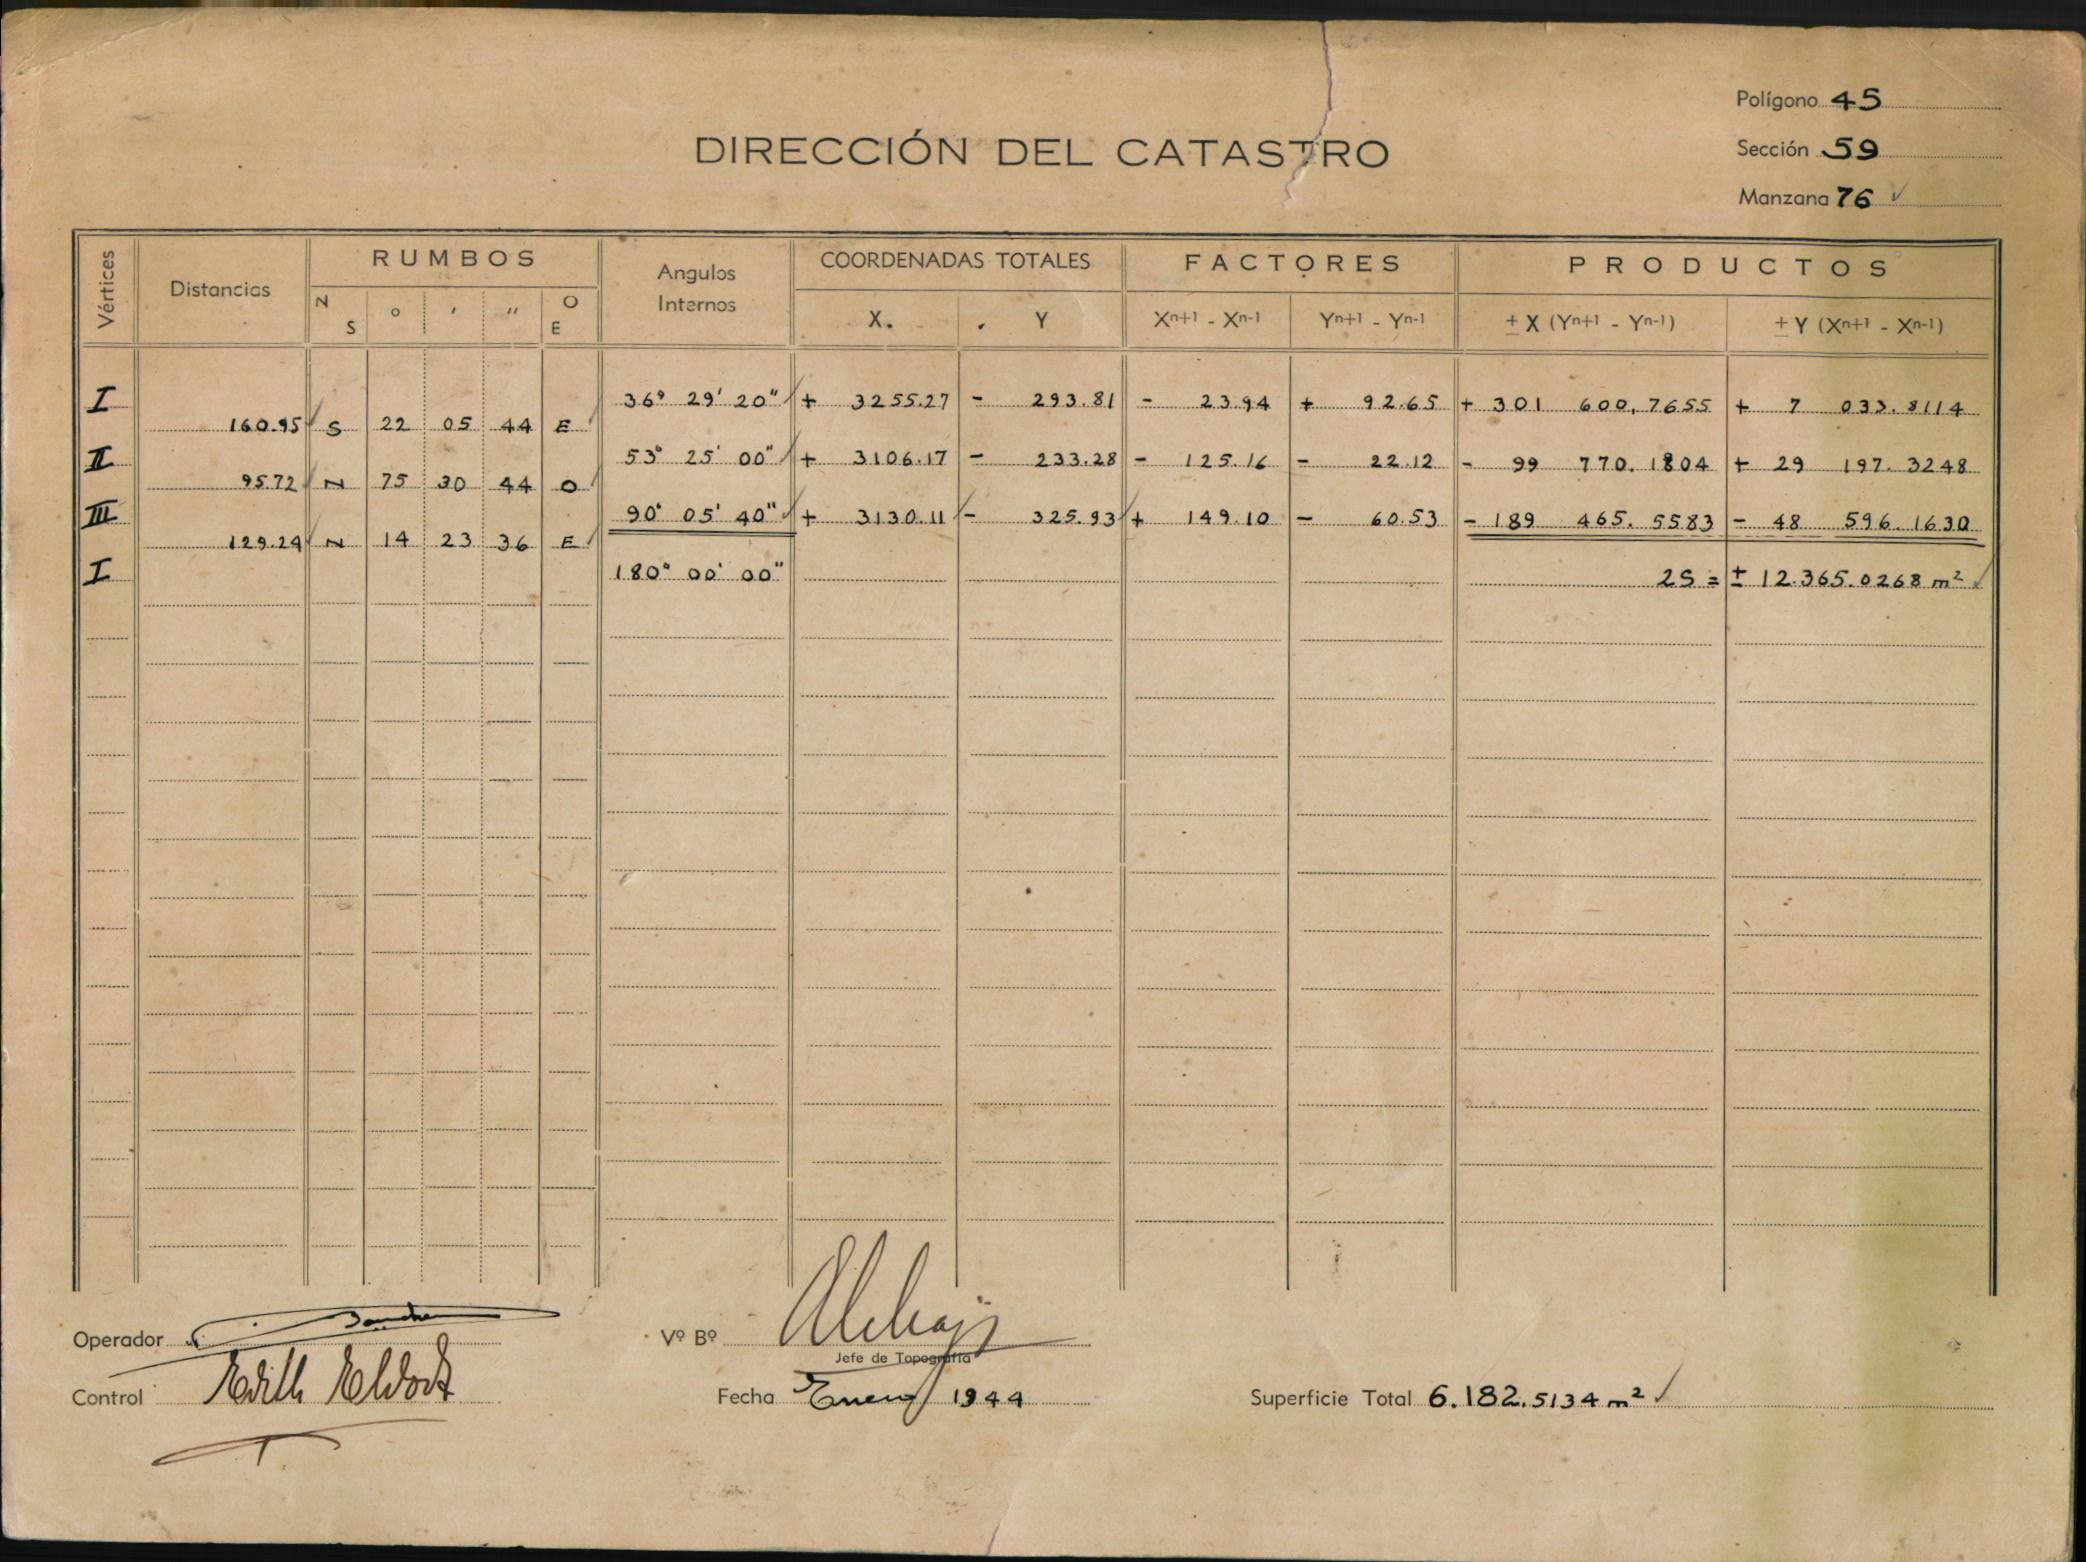 Polígono 45
DIRECCIÓN DEL CATASTRO
Sección 59
Manzana 76 ✓
Vértices Distancias RUMBOS Angulos Internos COORDENADAS TOTALES FACTORES PRODUCTOS
N S ° ' " O E X. . Y Xn+1 - Xn-1 Yn+1 - Yn-1 ± X (Yn+1 - Yn-1) ± Y (Xn+1 - Xn-1)
I 36° 29' 20" + 3255.27 - 293.81 - 23.94 + 92.65 + 301 600,7655 + 7 033.8114
160.95 S 22 05 44 E
II 53° 25' 00" + 3106.17 - 233.28 - 125.16 - 22.12 - 99 770.1804 + 29 197.3248
95.72 N 75 30 44 O
III 90° 05' 40" + 3130.11 - 325.93 + 149.10 - 60.53 - 189 465.5583 - 48 596.1630
129.29 N 14 23 36 E
I 180° 00' 00" 2S = ± 12.365.0268 m²
Operador
Vº Bº
Jefe de Topografía
Control Edith
Fecha Enero 1944
Superficie Total 6.182.5134 m²